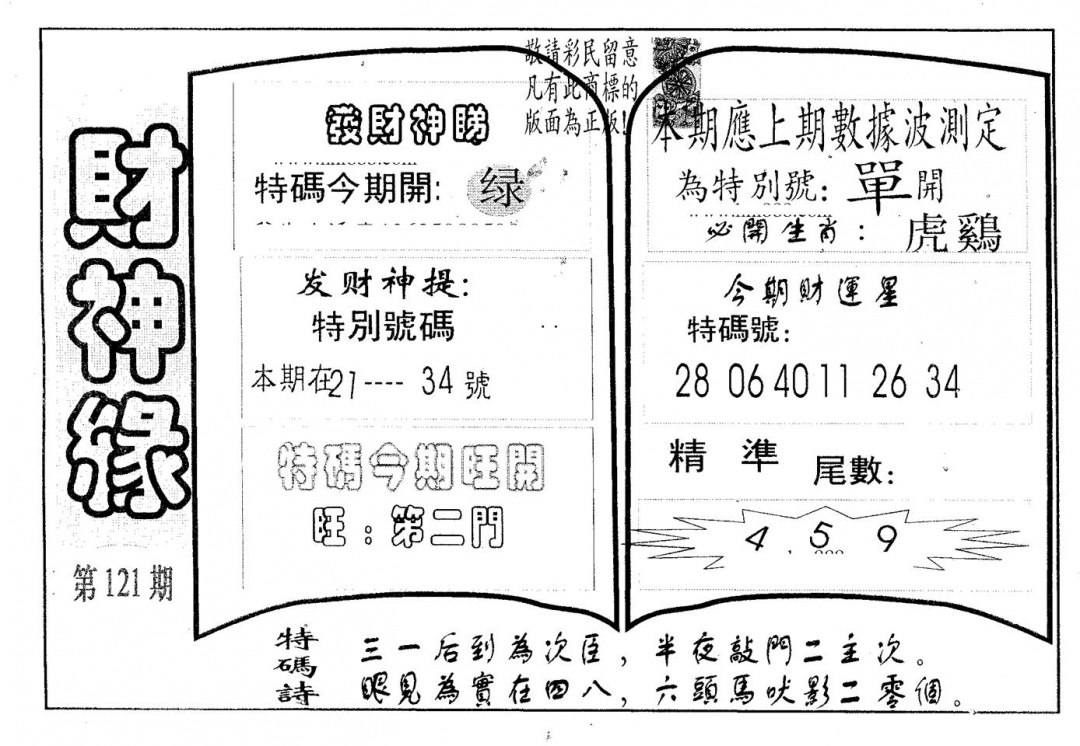 財神緣
第121期
敬請彩民留意
凡有此商標的
版面為正版!
發財神睇
特碼今期開: 绿
发财神提:
特別號碼
本期在21----34號
特碼今期旺開
旺:第二門
本期應上期數據波測定
為特別號: 單開
必開生肖: 虎鷄
今期財運星
特碼號:
28 06 40 11 26 34
精準 尾數:
4 5 9
特碼詩
三一后到為次臣,半夜敲門二主次。
眼見為實在四八,六頭馬吠影二零個。